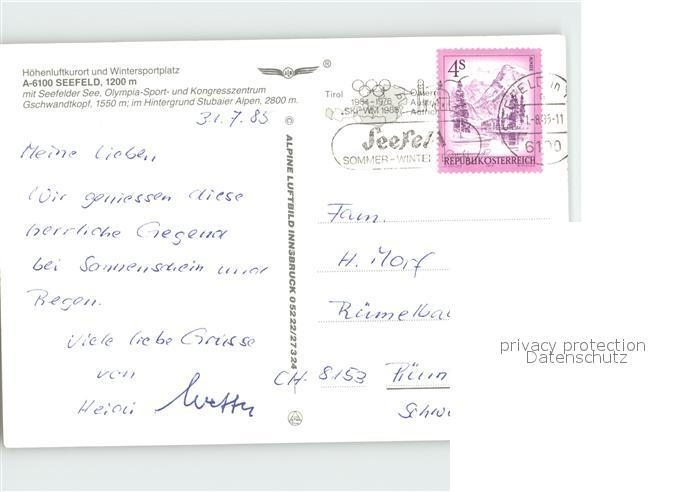 Höhenluftkurort und Wintersportplatz
A-6100 SEEFELD, 1200 m
mit Seefelder See, Olympia-Sport- und Kongresszentrum
Gschwandtkopf, 1550 m; im Hintergrund Stubaier Alpen, 2800 m.
®
31.7.85
Meine Lieben
Wir geniessen diese
herrliche Gegend
bei Sonnenschein und
Regen.
Viele liebe Grüsse
von
Heidi
© ALPINE LUFTBILD INNSBRUCK 05222/27324
Tirol
1964-1976
SKI-WM 1985
Seefel
SOMMER-WINTE
4S
REPUBLIK ÖSTERREICH
6100
Fam.
H. Morf
Rümelba
CH. 8153 Rüm
Schw
privacy protection
Datenschutz